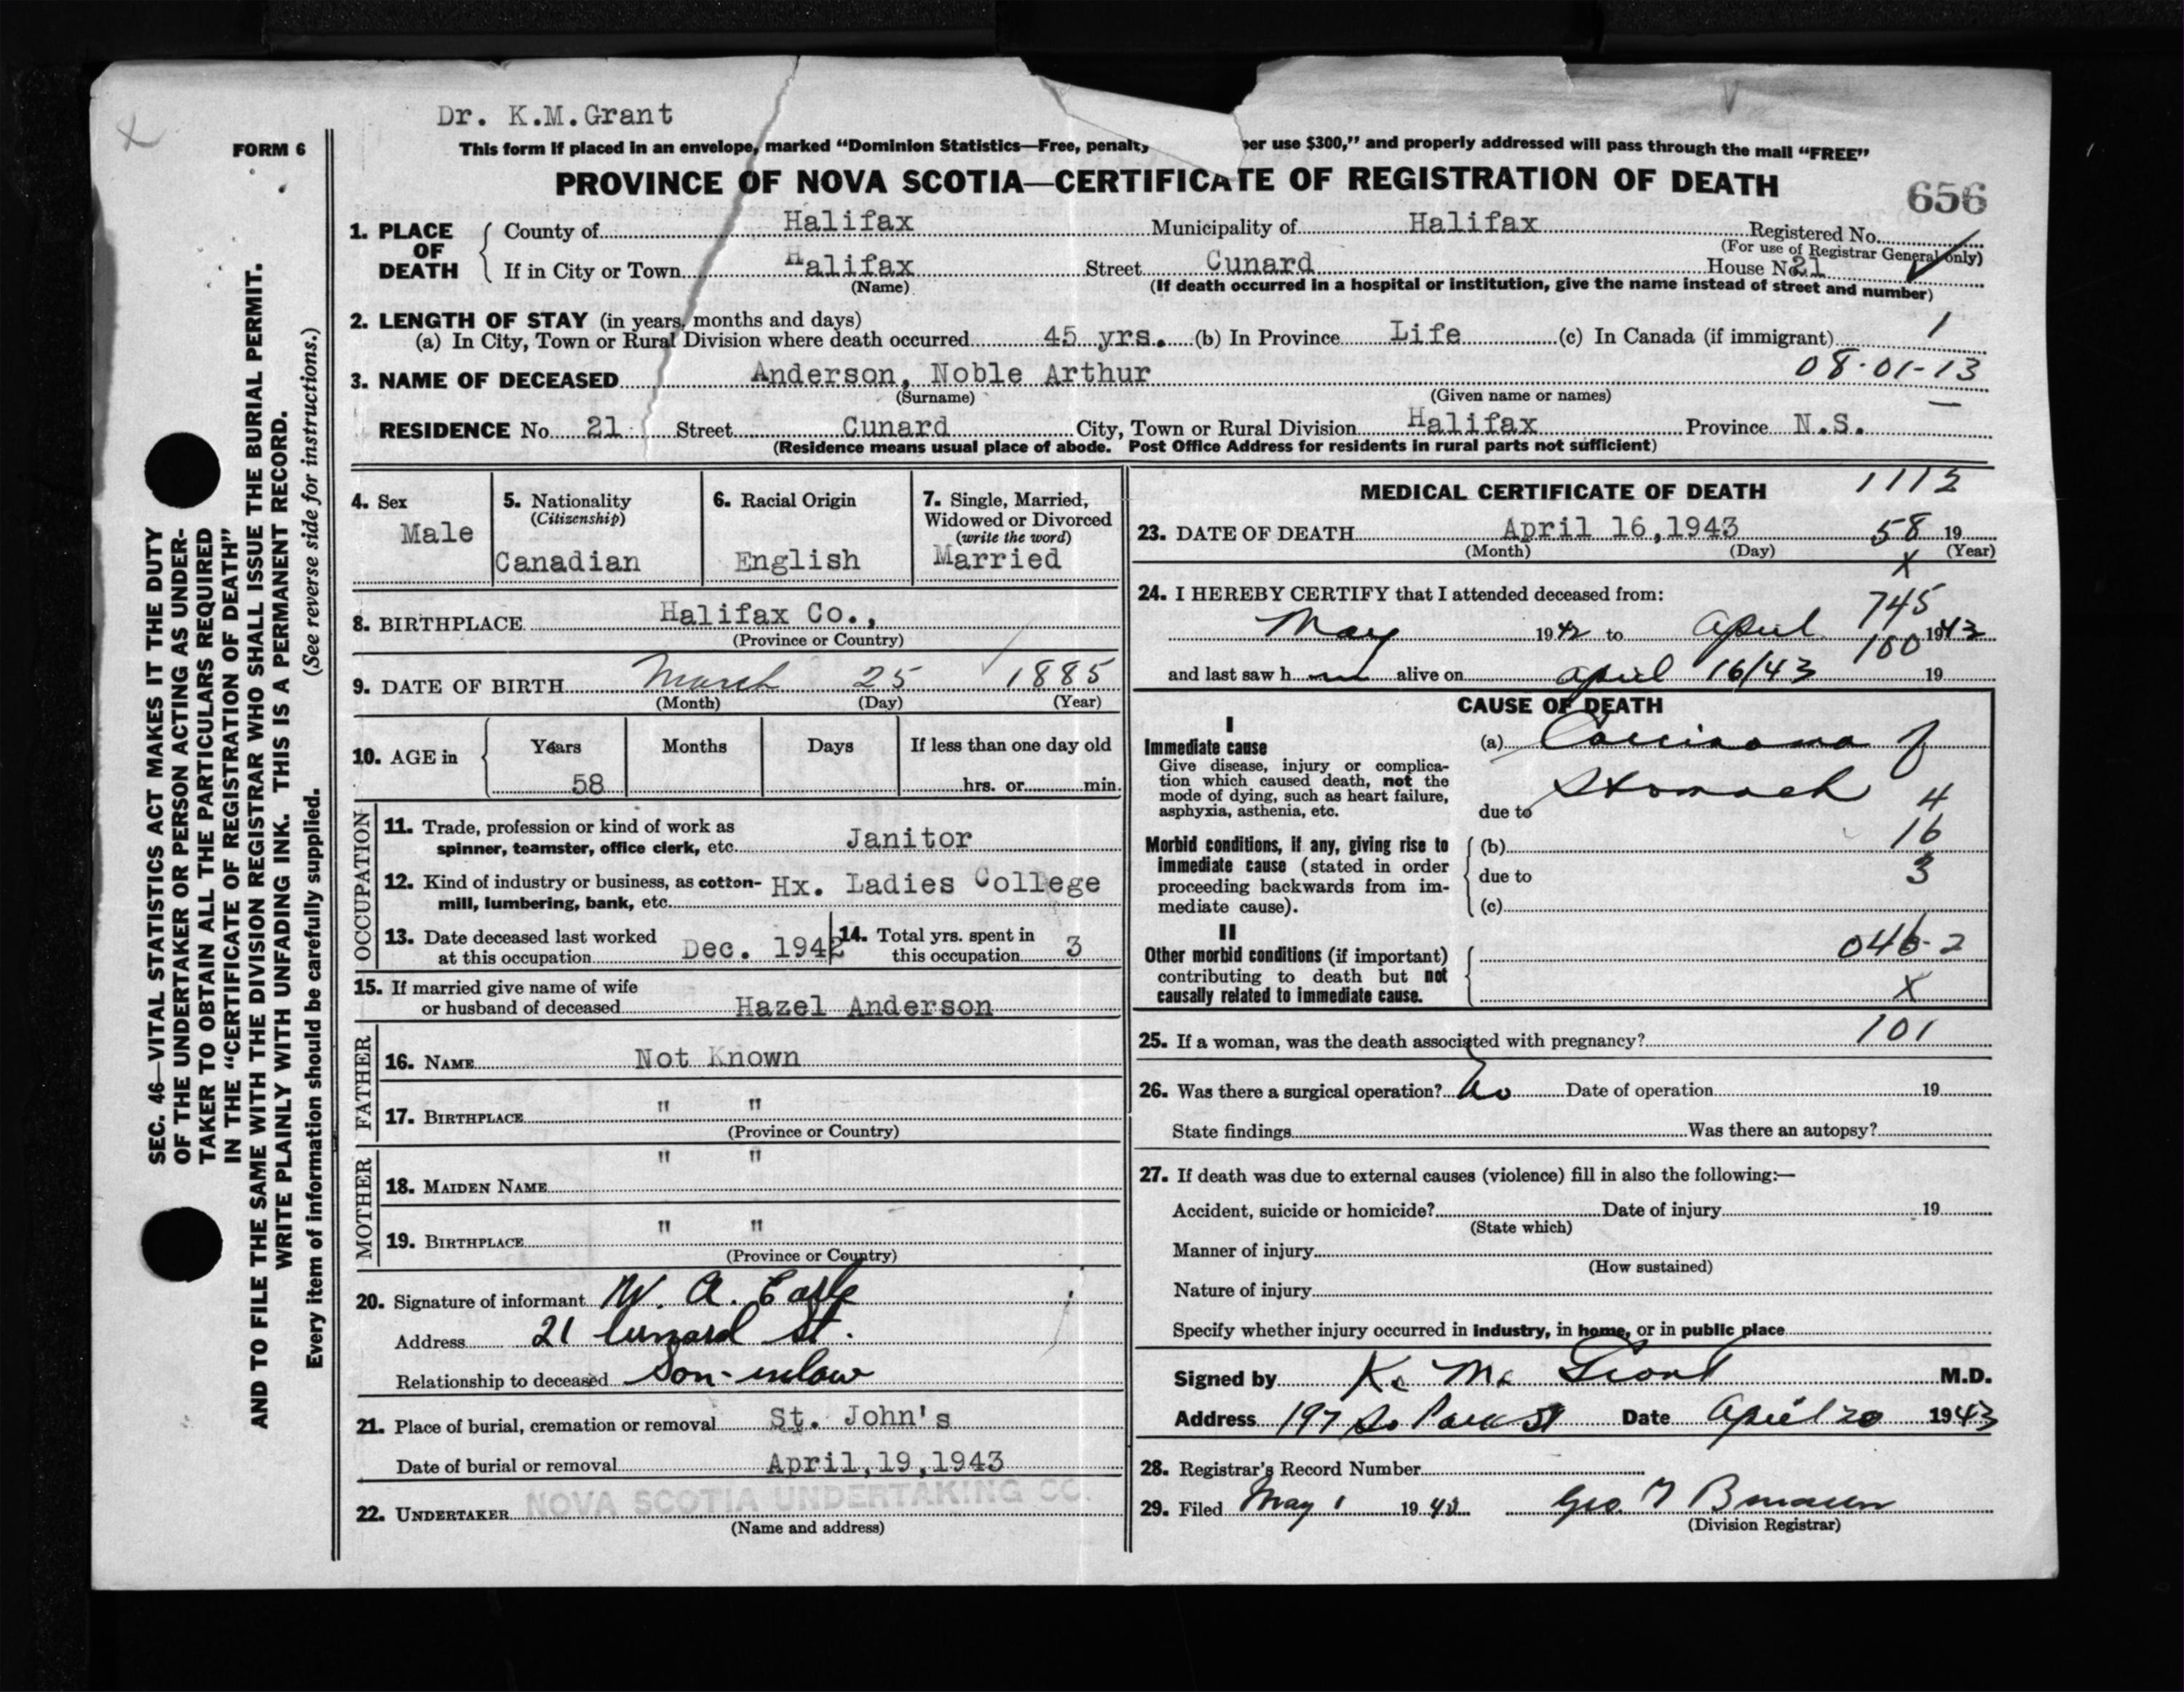 Dr. K.M.Grant
FORM 6
This form if placed in an envelope, marked “Dominion Statistics—Free, penalty per use $300,” and properly addressed will pass through the mail “FREE”
PROVINCE OF NOVA SCOTIA—CERTIFICATE OF REGISTRATION OF DEATH
656
1. PLACE OF DEATH
County of Halifax Municipality of Halifax Registered No.
(For use of Registrar General only)
If in City or Town Halifax Street Cunard House No. 21
(Name) (If death occurred in a hospital or institution, give the name instead of street and number)
2. LENGTH OF STAY (in years, months and days)
(a) In City, Town or Rural Division where death occurred 45 yrs. (b) In Province Life (c) In Canada (if immigrant) 1
08-01-13
3. NAME OF DECEASED Anderson, Noble Arthur
(Surname) (Given name or names)
RESIDENCE No. 21 Street Cunard City, Town or Rural Division Halifax Province N.S.
(Residence means usual place of abode. Post Office Address for residents in rural parts not sufficient)
4. Sex
Male
5. Nationality
(Citizenship)
Canadian
6. Racial Origin
English
7. Single, Married,
Widowed or Divorced
(write the word)
Married
8. BIRTHPLACE Halifax Co.,
(Province or Country)
9. DATE OF BIRTH March 25 1885
(Month) (Day) (Year)
10. AGE in Years Months Days If less than one day old
58 hrs. or min.
OCCUPATION
11. Trade, profession or kind of work as
spinner, teamster, office clerk, etc. Janitor
12. Kind of industry or business, as cotton-
mill, lumbering, bank, etc. Hx. Ladies College
13. Date deceased last worked
at this occupation Dec. 1942
14. Total yrs. spent in
this occupation 3
15. If married give name of wife
or husband of deceased Hazel Anderson
FATHER
16. NAME Not Known
17. BIRTHPLACE " "
(Province or Country)
MOTHER
18. MAIDEN NAME " "
19. BIRTHPLACE " "
(Province or Country)
20. Signature of informant W. A.
Address 21 Cunard St.
Relationship to deceased Son-inlaw
21. Place of burial, cremation or removal St. John's
Date of burial or removal April,19,1943
22. UNDERTAKER NOVA SCOTIA UNDERTAKING CO.
(Name and address)
MEDICAL CERTIFICATE OF DEATH 1112
23. DATE OF DEATH April 16,1943 58 19
(Month) (Day) (Year)
X
24. I HEREBY CERTIFY that I attended deceased from:
745
May 1942 to April 1943
100
and last saw h m alive on April 16/43 19
CAUSE OF DEATH
I
Immediate cause
Give disease, injury or complica-
tion which caused death, not the
mode of dying, such as heart failure,
asphyxia, asthenia, etc.
(a) Carcinoma of
Stomach
due to
4
Morbid conditions, if any, giving rise to
immediate cause (stated in order
proceeding backwards from im-
mediate cause).
(b) 16
due to 3
(c)
II
Other morbid conditions (if important)
contributing to death but not
causally related to immediate cause.
046-2
X
101
25. If a woman, was the death associated with pregnancy?
26. Was there a surgical operation? No Date of operation 19
State findings Was there an autopsy?
27. If death was due to external causes (violence) fill in also the following:—
Accident, suicide or homicide? Date of injury 19
(State which)
Manner of injury
(How sustained)
Nature of injury
Specify whether injury occurred in industry, in home, or in public place
Signed by K. M. Grant M.D.
Address 197 So Park St Date April 20 1943
28. Registrar's Record Number
29. Filed May 1 19
(Division Registrar)
SEC. 46—VITAL STATISTICS ACT MAKES IT THE DUTY
OF THE UNDERTAKER OR PERSON ACTING AS UNDER-
TAKER TO OBTAIN ALL THE PARTICULARS REQUIRED
IN THE “CERTIFICATE OF REGISTRATION OF DEATH”
AND TO FILE THE SAME WITH THE DIVISION REGISTRAR WHO SHALL ISSUE THE BURIAL PERMIT.
WRITE PLAINLY WITH UNFADING INK. THIS IS A PERMANENT RECORD.
Every item of information should be carefully supplied. (See reverse side for instructions.)